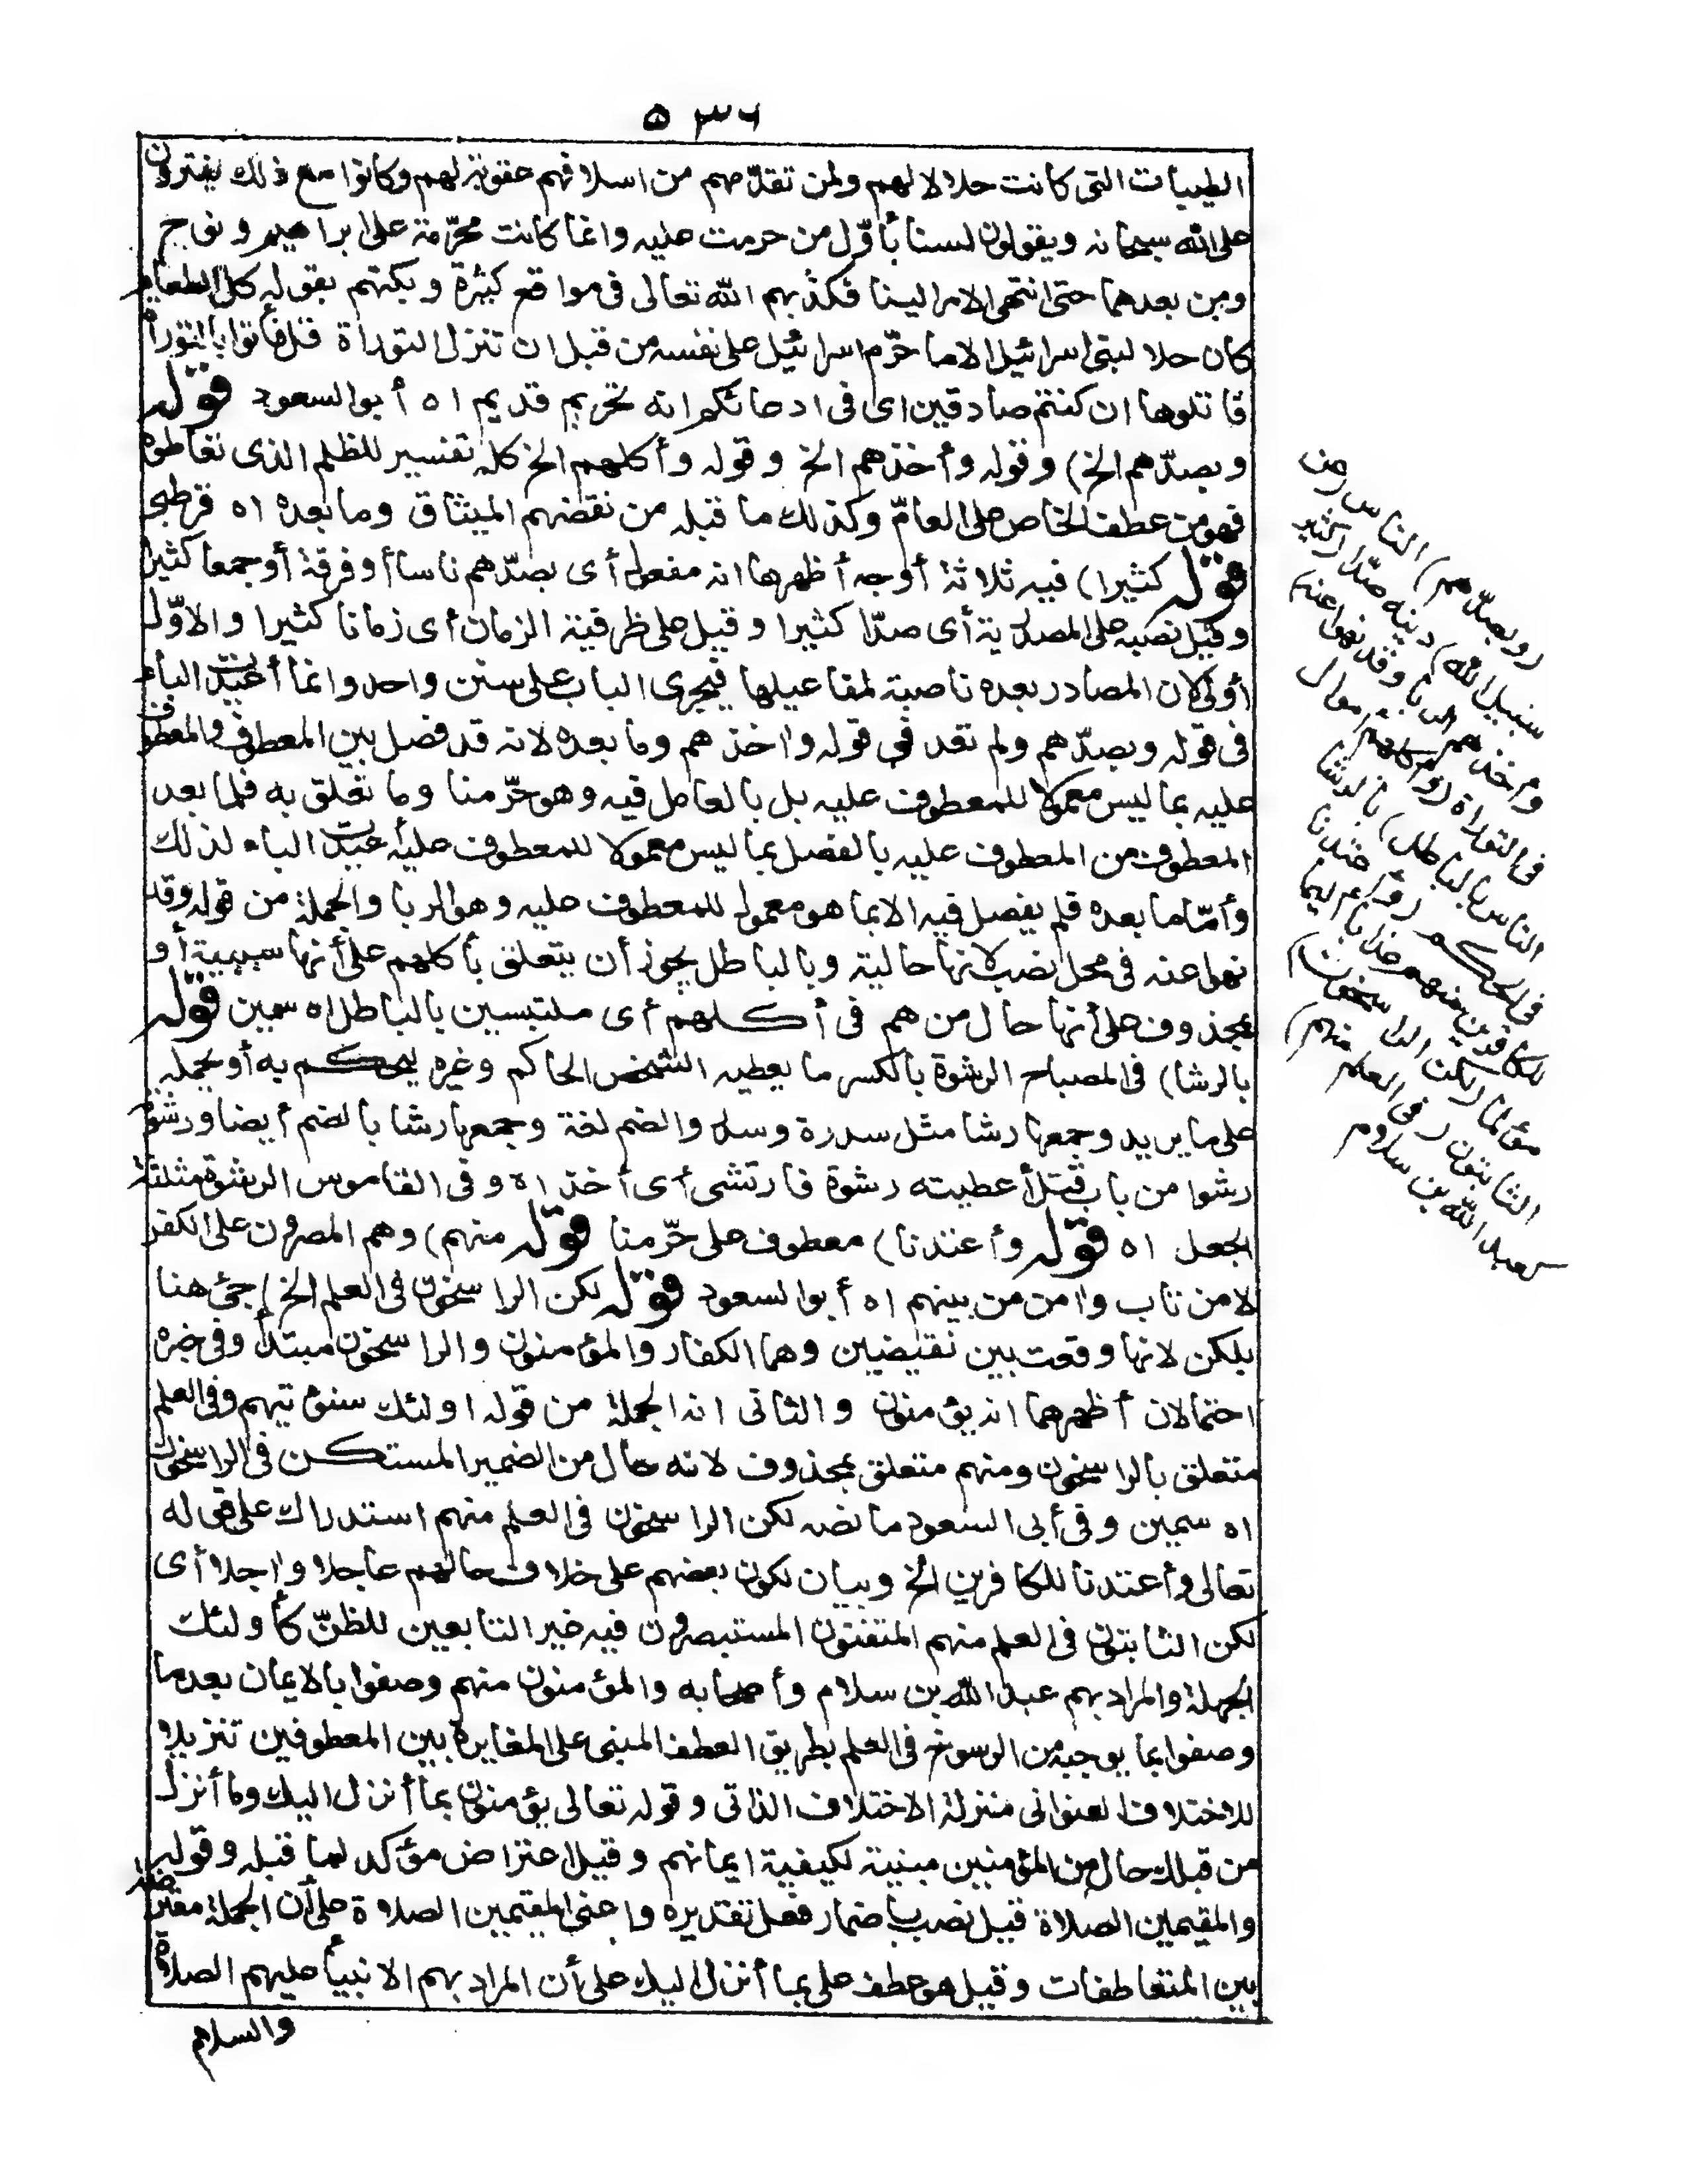 ٥٣٦
الطيبات التى كانت حلالا لهم ولمن تقدّمهم من اسلافهم عقوبة لهم وكانوا مع ذلك يفترون
على الله سبحانه ويقولون لسنا بأوّل من حرمت عليه وانما كانت محرّمة على ابراهيم ونوح
ومن بعدهما حتى انتهى الامر الينا فكذبهم الله تعالى فى مواقع كثيرة وبكتهم بقوله كل الطعام
كان حلا لبنى اسرائيل الا ما حرّم اسرائيل على نفسه من قبل ان تنزل التوراة قل فأتوا بالتوراة
فاتلوها ان كنتم صادقين اى فى ادعائكم انه تحريم قديم اه أبوالسعود قوله
وبصدّهم الخ) وقوله وأخذهم الخ وقوله وأكلهم الخ كله تفسير للظلم الذى تعاطوه
فهو من عطف الخاص على العامّ وكذلك ما قبله من نقضهم الميثاق وما بعده اه قرطبى
قوله كثيرا) فيه ثلاثة أوجه أظهرها انه مفعول أى بصدّهم ناسا أو فرقة أو جمعا كثيرا
وقيل نصبه على المصدرية أى صدّا كثيرا وقيل على ظرفية الزمان أى زمانا كثيرا والاوّل
أولى لان المصادر بعده ناصبة لمفاعيلها فيجرى الباب على سنن واحد وانما أعيدت الباء
فى قوله وبصدّهم ولم تعد فى قوله واخذهم وما بعده لانه قد فصل بين المعطوف والمعطوف
عليه بما ليس معمولا للمعطوف عليه بل بالعامل فيه وهو حرّمنا وما تعلق به فلما بعد
المعطوف من المعطوف عليه بالفصل بما ليس معمولا للمعطوف عليه أعيدت الباء لذلك
وأمّا ما بعده فلم يفصل فيه الا بما هو معمول للمعطوف عليه وهو الربا والجملة من قوله وقد
نهوا عنه فى محل نصب لانها حالية وبالباطل يجوز أن يتعلق بأكلهم على أنها سببية أو
بمحذوف على أنها حال من هم فى أكلهم أى ملتبسين بالباطل اه سمين قوله
بالرشا) فى المصباح الرشوة بالكسر ما يعطيه الشخص الحاكم وغيره ليحكم به أو يحمله
على ما يريد وجمعها رشا مثل سدرة وسدر والضم لغة وجمعها رشا بالضم أيضا ورشوته
رشوا من باب قتل أعطيته رشوة فارتشى أى أخذ اه وفى القاموس الرشوة مثلثة
الجعل اه قوله وأعتدنا) معطوف على حرّمنا قوله منهم) وهم المصرون على الكفر
لا من تاب وامن من بينهم اه أبوالسعود قوله لكن الراسخون فى العلم الخ) جئ هنا
بلكن لانها وقعت بين نقيضين وهما الكفار والمؤمنون والراسخون مبتدأ وفى خبره
احتمالان أظهرهما انه يؤمنون والثانى انه الجملة من قوله اولئك سنؤتيهم وفى العلم
متعلق بالراسخون ومنهم متعلق بمحذوف لانه حال من الضمير المستكن فى الراسخون
اه سمين وفى أبى السعود ما نصه لكن الراسخون فى العلم منهم استدراك على قوله
تعالى وأعتدنا للكافرين الخ وبيان لكون بعضهم على خلاف حالهم عاجلا واجلا أى
لكن الثابتون فى العلم منهم المتقنون المستبصرون فيه غير التابعين للظنّ كأولئك
الجهلة والمراد بهم عبد الله بن سلام وأصحابه والمؤمنون منهم وصفوا بالايمان بعدما
وصفوا بما يوجبه من الرسوخ فى العلم بطريق العطف المبنى على المغايرة بين المعطوفين تنزيلا
للاختلاف العنوانى منزلة الاختلاف الذاتى وقوله تعالى يؤمنون بما أنزل اليك وما أنزل
من قبلك حال من المؤمنين مبنية لكيفية ايمانهم وقيل اعتراض مؤكد لما قبله وقوله
والمقيمين الصلاة قيل نصب باضمار فعل تقديره واعنى المقيمين الصلاة على أن الجملة معترضة
بين المتعاطفات وقيل هو عطف على بما أنزل اليك على أن المراد بهم الانبياء عليهم الصلاة
والسلام
(وبصدّهم) الناس (عن
سبيل الله) دينه صدّا (كثيرا
وأخذهم الربا وقد نهوا عنه)
فى التوراة (وأكلهم أموال
الناس بالباطل) بالرشا
فى الحكم (وأعتدنا
للكافرين منهم عذابا أليما)
مؤلما (لكن الراسخون)
الثابتون (فى العلم منهم)
كعبد الله بن سلام